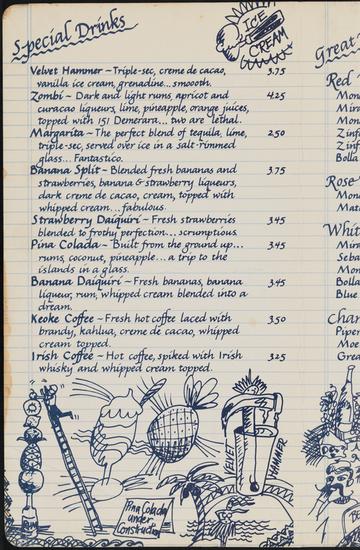 Special Drinks
ICE
CREAM
Velvet Hammer ~ Triple-sec, creme de cacao, 3.75
vanilla ice cream, grenadine... smooth.
Zombi ~ Dark and light rums, apricot and 4.25
curacao liqueurs, lime, pineapple, orange juices,
topped with 151 Demerara... two are lethal.
Margarita ~ The perfect blend of tequila, lime, 2.50
triple-sec, served over ice in a salt-rimmed
glass... Fantastico.
Banana Split ~ Blended fresh bananas and 3.75
strawberries, banana & strawberry liqueurs,
dark creme de cacao, cream, topped with
whipped cream... fabulous.
Strawberry Daiquiri ~ Fresh strawberries 3.45
blended to frothy perfection... scrumptious.
Pina Colada ~ Built from the ground up... 3.45
rums, coconut, pineapple... a trip to the
islands in a glass.
Banana Daiquiri ~ Fresh bananas, banana 3.45
liqueur, rum, whipped cream blended into a
dream.
Keoke Coffee ~ Fresh hot coffee laced with 3.50
brandy, kahlua, creme de cacao, whipped
cream topped.
Irish Coffee ~ Hot coffee, spiked with Irish 3.25
whisky and whipped cream topped.
VELVET
HAMMER
Pina Colada
under
Construction
RUM
Great
Red
Mon
Mira
Mon
Zinf
Zinf
Bolla
Rose
Mon
Mat
Whit
Mir
Seba
Mon
Bolla
Blue
Cha
Piper
Moe
Grea